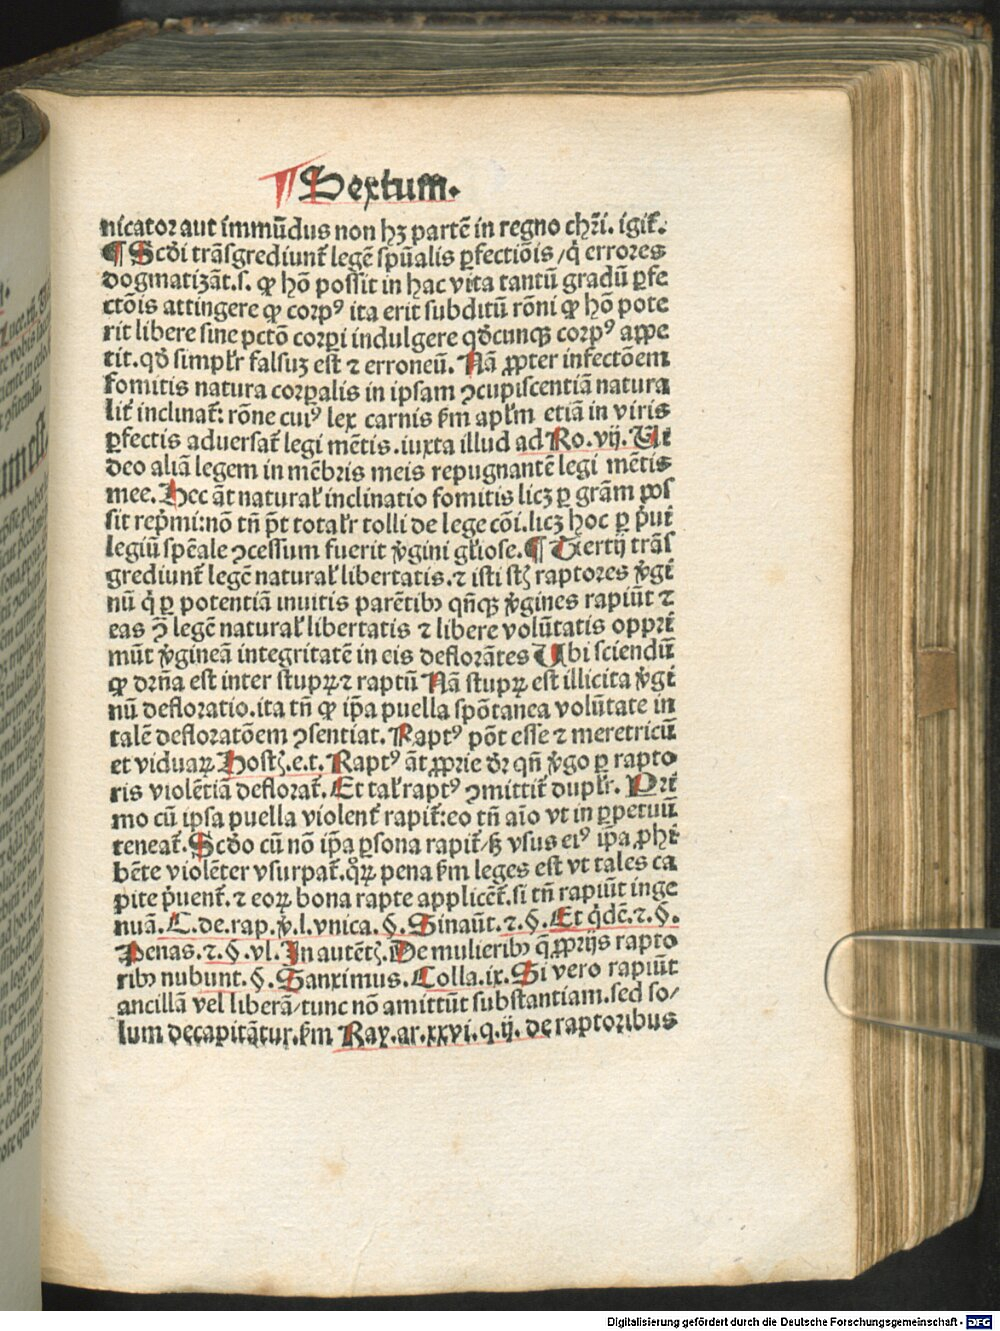 ¶ Sextum.
nicator aut immūdus non hꝫ partē in regno chr̄i. igit̄.
¶ Scd̄i trāsgrediunt̄ legē spūalis ꝑfectiōis / q̇ errores
dogmatizāt. s. ꝙ hō possit in hac vita tantū gradū ꝑfe
ctōis attingere ꝙ corpꝰ ita erit subditū rōni ꝙ hō pote
rit libere sine pctō corpi indulgere qd̄cunqꝫ corpꝰ appe
tit. qd̄ simplr̄ falsuꝫ est ⁊ erroneū. Nā ꝓpter infectōem
fomitis natura corꝑalis in ipsam ꝯcupiscentiā natura
lit̄ inclinat̄: rōne cuiꝰ lex carnis ẜm apl̄m etiā in viris
ꝑfectis aduersat̄ legi mētis. iuxta illud ad Ro. vij. Ui
deo aliā legem in mēbris meis repugnantē legi mētis
mee. Hec āt natural̄ inclinatio fomitis licꝫ ꝑ grām pos
sit rep̄mi: nō tn̄ p̄t total̄r tolli de lege cōi. licꝫ hoc ꝑ ṗui
legiū spēale ꝯcessum fuerit v̇gini gl̄iose. ¶ Tertij trās
grediunt̄ legē natural̄ libertatis. ⁊ isti sꝫ raptores v̇gi
nū q̇ ꝑ potentiā inuitis parētibꝫ qn̄qꝫ v̇gines rapiūt ⁊
eas ꝯ̄ legē natural̄ libertatis ⁊ libere volūtatis oppri
mūt v̇gineā integritatē in eis deflorātes Ubi sciendū
ꝙ dr̄na est inter stuprꝫ ⁊ raptū Nā stuprꝫ est illicita v̇gi
nū defloratio. ita tn̄ ꝙ ip̄a puella spōtanea volūtate in
talē defloratōem ꝯsentiat. Raptꝰ pōt esse ⁊ meretricū
et viduaꝝ Hostꝫ. e. t. Raptꝰ āt ꝓprie dr̄ qn̄ v̇go ꝑ rapto
ris violētiā deflorat̄. Et tal̄ raptꝰ ꝯmittit̄ duplr̄. Pri
mo cū ipsa puella violent̄ rapit̄: eo tn̄ aīo vt in ꝑpetuū
teneat̄. Scd̄o cū nō ip̄a ꝑsona rapit̄ / ẜꝫ vsus eiꝰ ip̄a ꝓhi
bēte violēter vsurpat̄. qꝝ pena ẜm leges est vt tales ca
pite ṗuent̄. ⁊ eoꝝ bona rapte applicēt̄. si tn̄ rapiūt inge
nuā. C. de. rap. v̇. l. vnica. §. Sinaūt. ⁊. §. Et q̇dē. ⁊. §.
Penas. ⁊. §. vl. In autētꝫ. De mulieribꝫ q̄ ꝓprijs rapto
ribꝫ nubunt. §. Sanximus. Colla. ix. Si vero rapiūt
ancillā vel liberā / tunc nō amittūt substantiam. sed so/
lum decapitātur. ẜm Ray. ar. xxvi. q. ij. de raptoribus
Digitalisierung gefördert durch die Deutsche Forschungsgemeinschaft - DFG